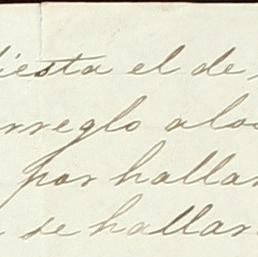 iesta el de
rreglo a lo
por halla
se hallar